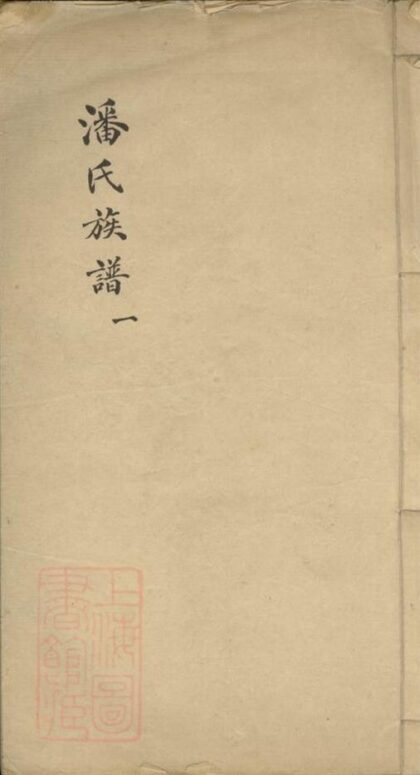 潘氏族譜
一
上海圖
書館藏